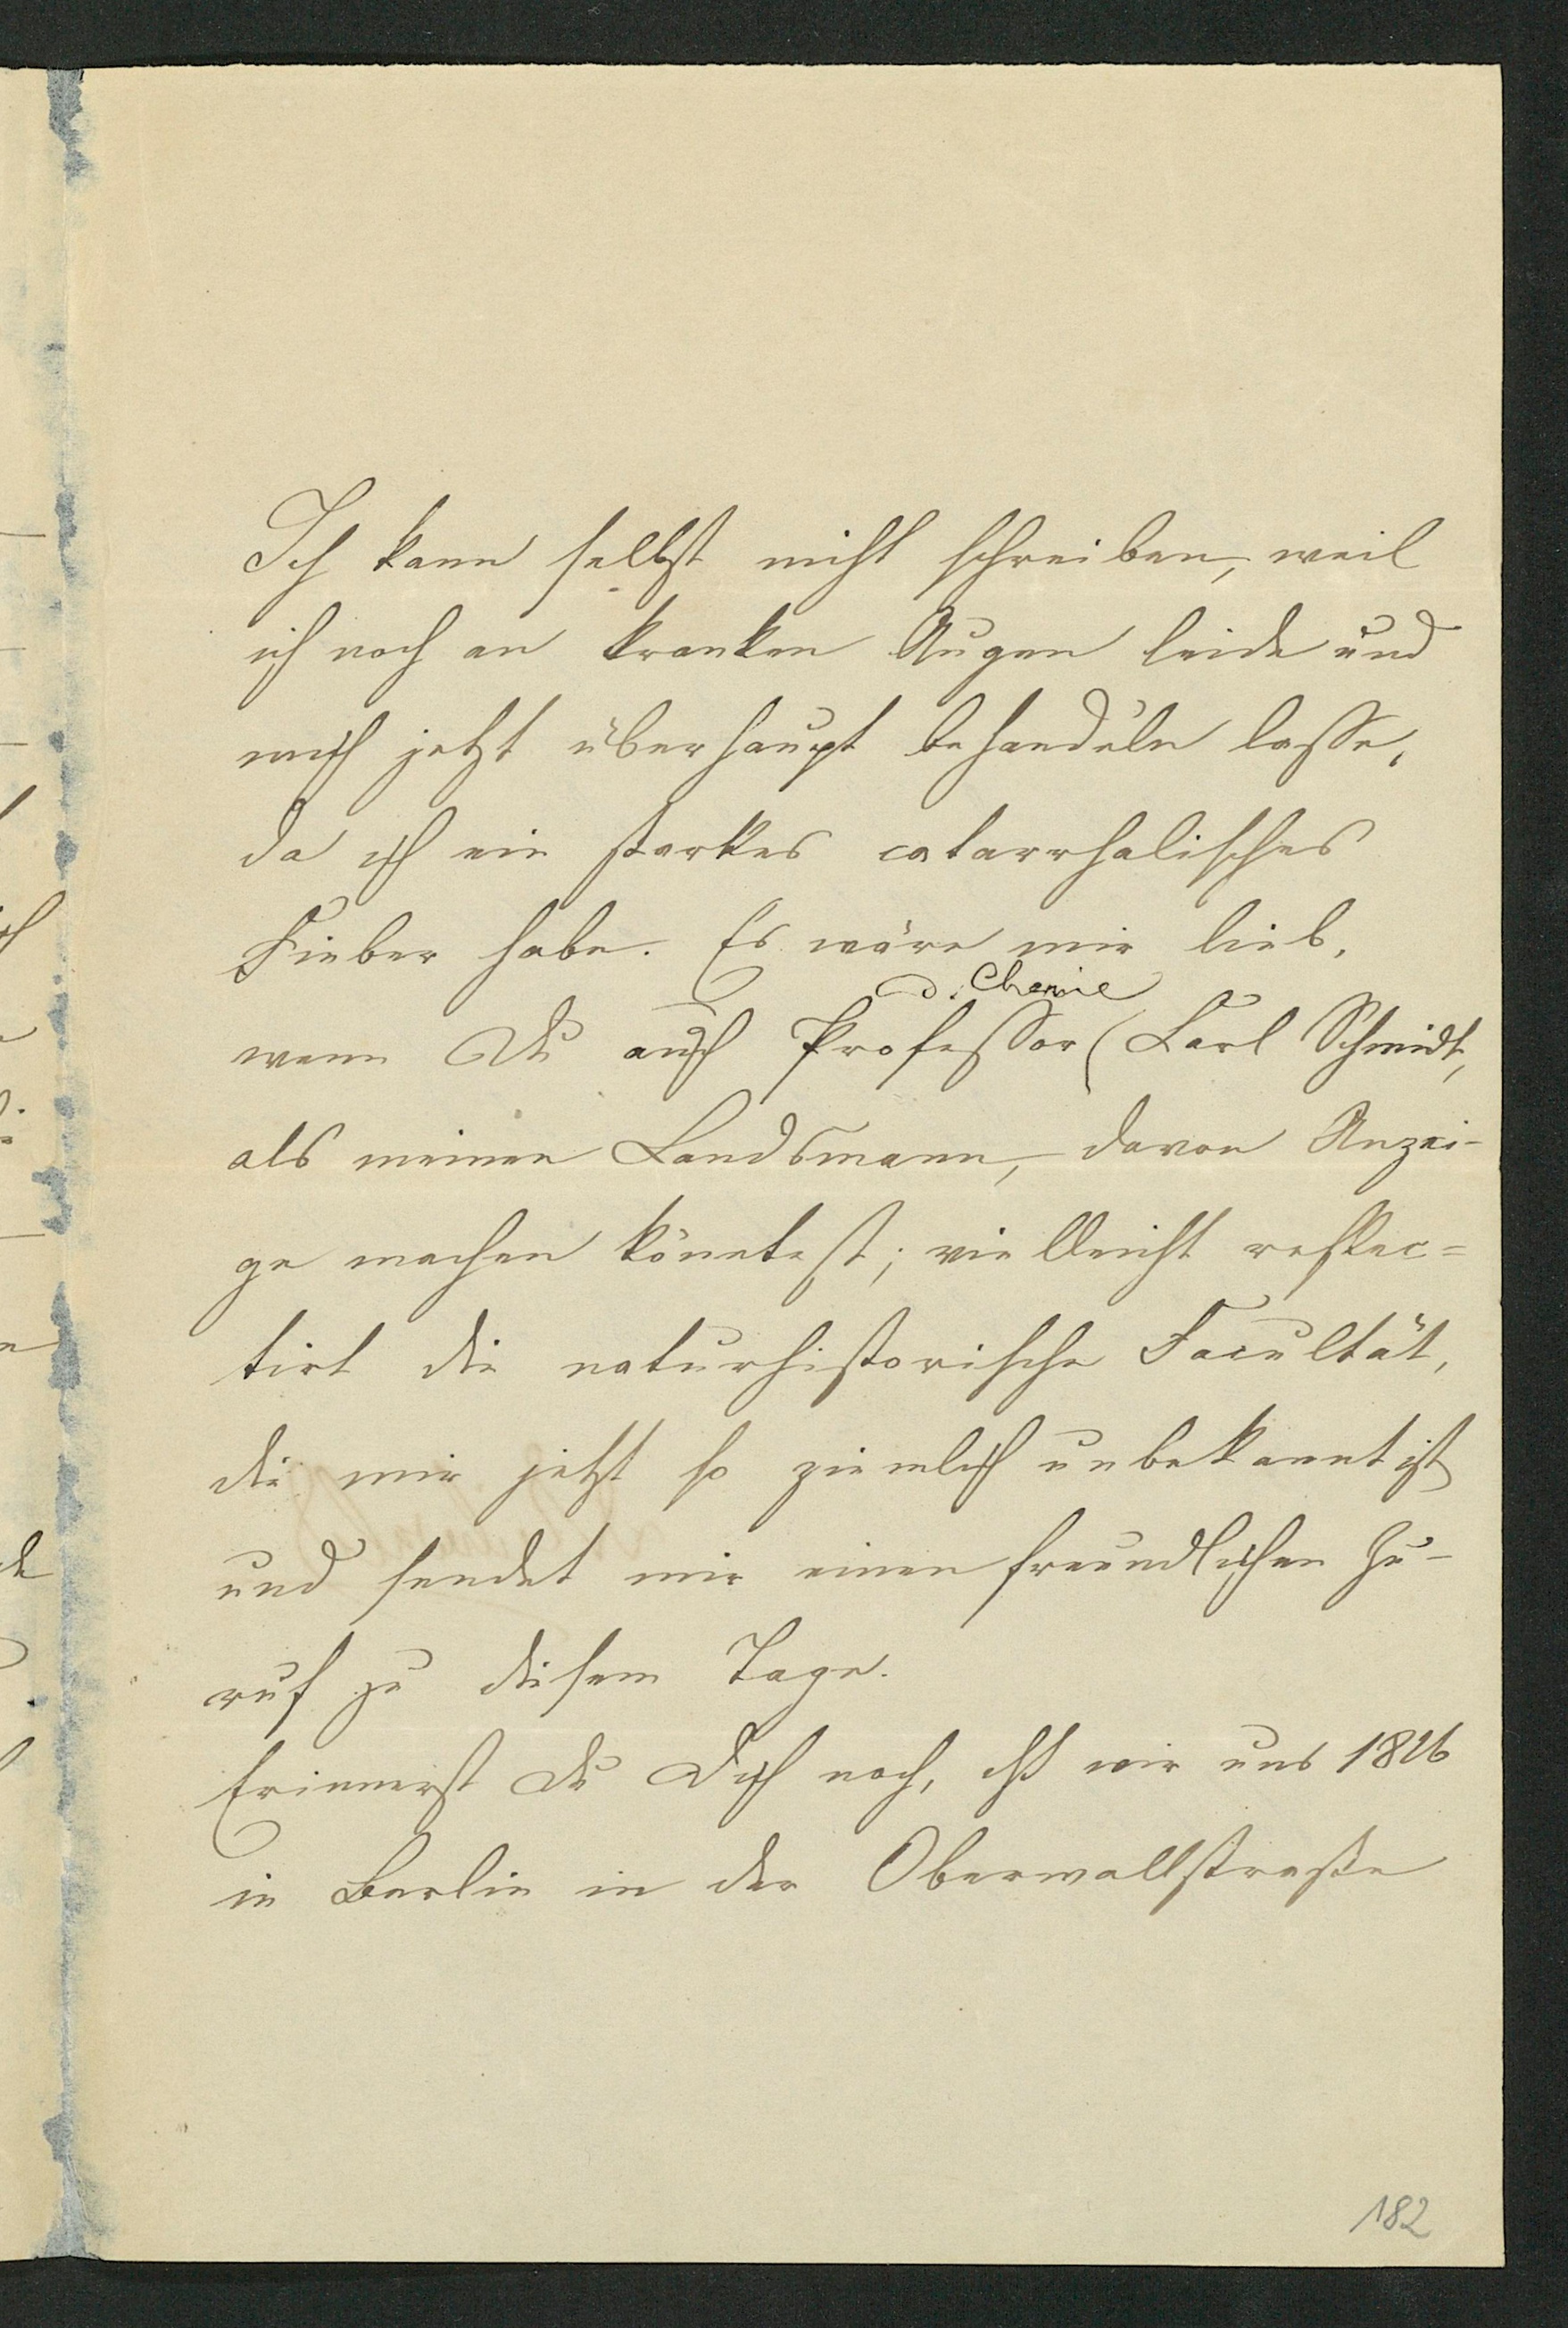 Ich kann selbst nicht schreiben, weil
ich noch an kranken Augen leide und
mich jetzt überhaupt behandeln lasse,
da ich ein starkes catarrhalisches
Fieber habe. Es wäre mir lieb,
d. Chemie
wenn Du auch Professor ( Carl Schmidt,
als meinen Landsmann, davon Anzei-
ge machen könntest; vielleicht reflec=
tirt die naturhistorische Facultät,
die mir jetzt so ziemlich unbekannt ist
und sendet mir einen freundlichen Zu-
ruf zu diesem Tage.
Erinnerst Du Dich noch, daß wir uns 1826
in Berlin in der Oberwallstraße
182